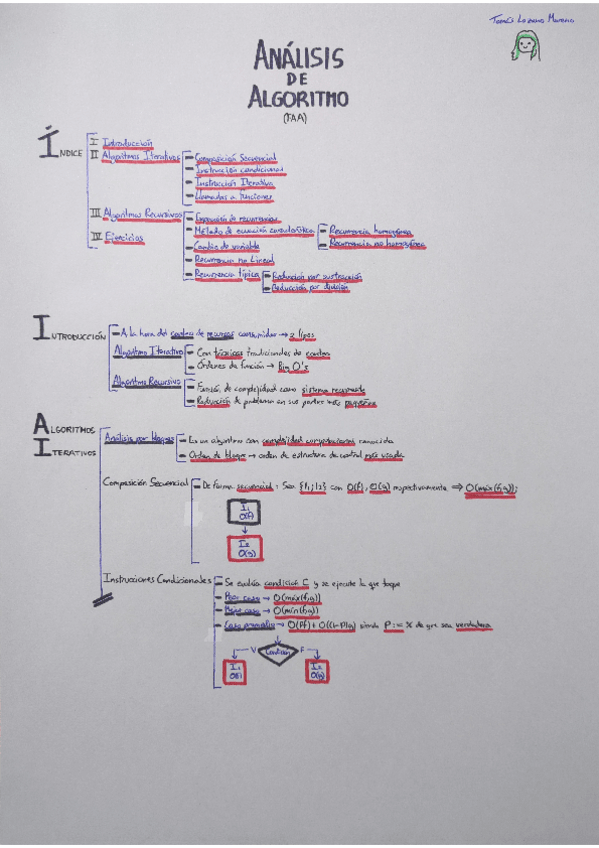 Tomás Lozano Moreno
ANÁLISIS
DE
ALGORITMO
(TAA)
ÍNDICE
I Introducción
II Algoritmos Iterativos
Composición Secuencial
Instrucción condicional
Instrucción Iterativa
Llamadas a funciones
III Algoritmos Recursivos
Expansión de recurrencias
Método de ecuación característica
Recurrencia homogénea
Recurrencia no homogénea
Cambio de variable
Recurrencia no Lineal
Recurrencia típica
Reducción por sustracción
Reducción por división
IV Ejercicios
INTRODUCCIÓN
A la hora del conteo de recursos consumidos → 2 tipos
Algoritmo Iterativo
Con técnicas tradicionales de conteo
Órdenes de función → Big O's
Algoritmo Recursivo
Función de complejidad como sistema recurrente
Reducción de problema en sus partes más pequeñas
ALGORITMOS
ITERATIVOS
Análisis por bloques
Es un algoritmo con complejidad computacional conocida
Orden de bloque → orden de estructura de control más usada
Composición Secuencial
De forma secuencial: Sea {I1; I2} con O(f), O(g) respectivamente ⇒ O(máx(f,g));
I1
O(f)
I2
O(g)
Instrucciones Condicionales
Se evalúa condición C y se ejecute lo que toque
Peor caso → O(máx(f,g))
Mejor caso → O(mín(f,g))
Caso promedio → O(Pf) + O((1-P)g) siendo P := % de que sea verdadera
V Condición F
I1
O(f)
I2
O(g)